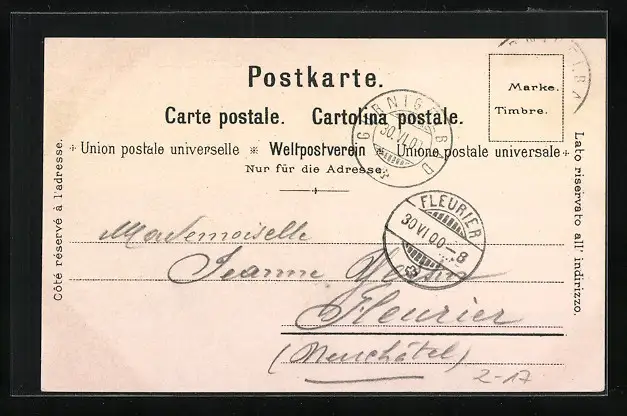 Postkarte.
Marke.
Timbre.
Carte postale. Cartolina postale.
Union postale universelle Weltpostverein Unione postale universale
Nur für die Adresse.
Côté réservé à l'adresse.
Lato riservato all' indirizzo.
30 VI 00
FLEURIER
30 VI 00-8
Mademoiselle
Jeanne
Fleurier
(Neuchâtel)
2-17